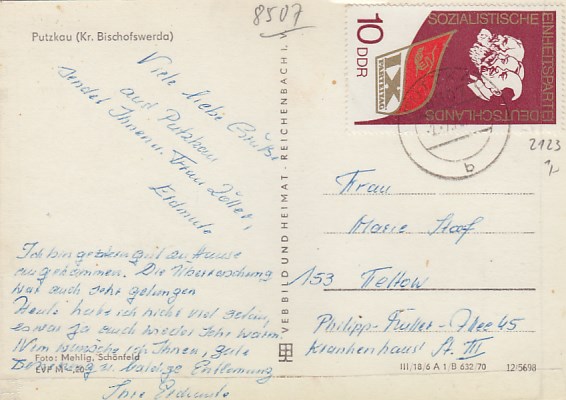 8507
Putzkau (Kr. Bischofswerda)
Viele liebe Grüße
aus Putzkau
sendet Ihnen Frau Zöller,
Eidmute
Ich bin gestern gut zu Hause
angekommen. Die Überraschung
war auch sehr gelungen
Heute habe ich nicht viel
es war ja auch wieder sehr warm.
Nun wünsche ich Ihnen, gute
Besserung u. baldige Entlassung
Ihre
Foto: Mehlig, Schönfeld
VEB BILD UND HEIMAT · REICHENBACH I. V.
SOZIALISTISCHE
EINHEITSPARTEI
DEUTSCHLANDS
10
DDR
IX
PARTEITAG
2123
Frau
Marie
153 Teltow
Philipp-Müller-Allee 45
Krankenhaus St. III
III/18/6 A 1/B 632/70
12/5698